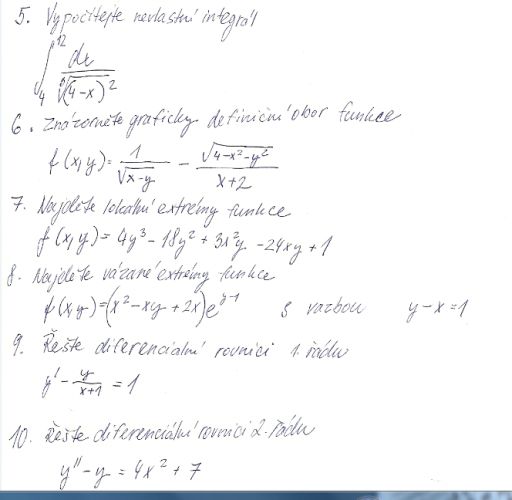 5. Vypočítejte nevlastní integrál
∫₄¹² dx / ∛(4-x)²
6. Znázorněte graficky definiční obor funkce
f(x,y) = 1/√(x-y) - √(4-x²-y²)/(x+2)
7. Najděte lokální extrémy funkce
f(x,y) = 4y³ - 18y² + 3x²y - 24xy + 1
8. Najděte vázané extrémy funkce
f(x,y) = (x² - xy + 2x)e^(y-1) s vazbou y - x = 1
9. Řešte diferenciální rovnici 1. řádu
y' - y/(x+1) = 1
10. Řešte diferenciální rovnici 2. řádu
y'' - y = 4x² + 7